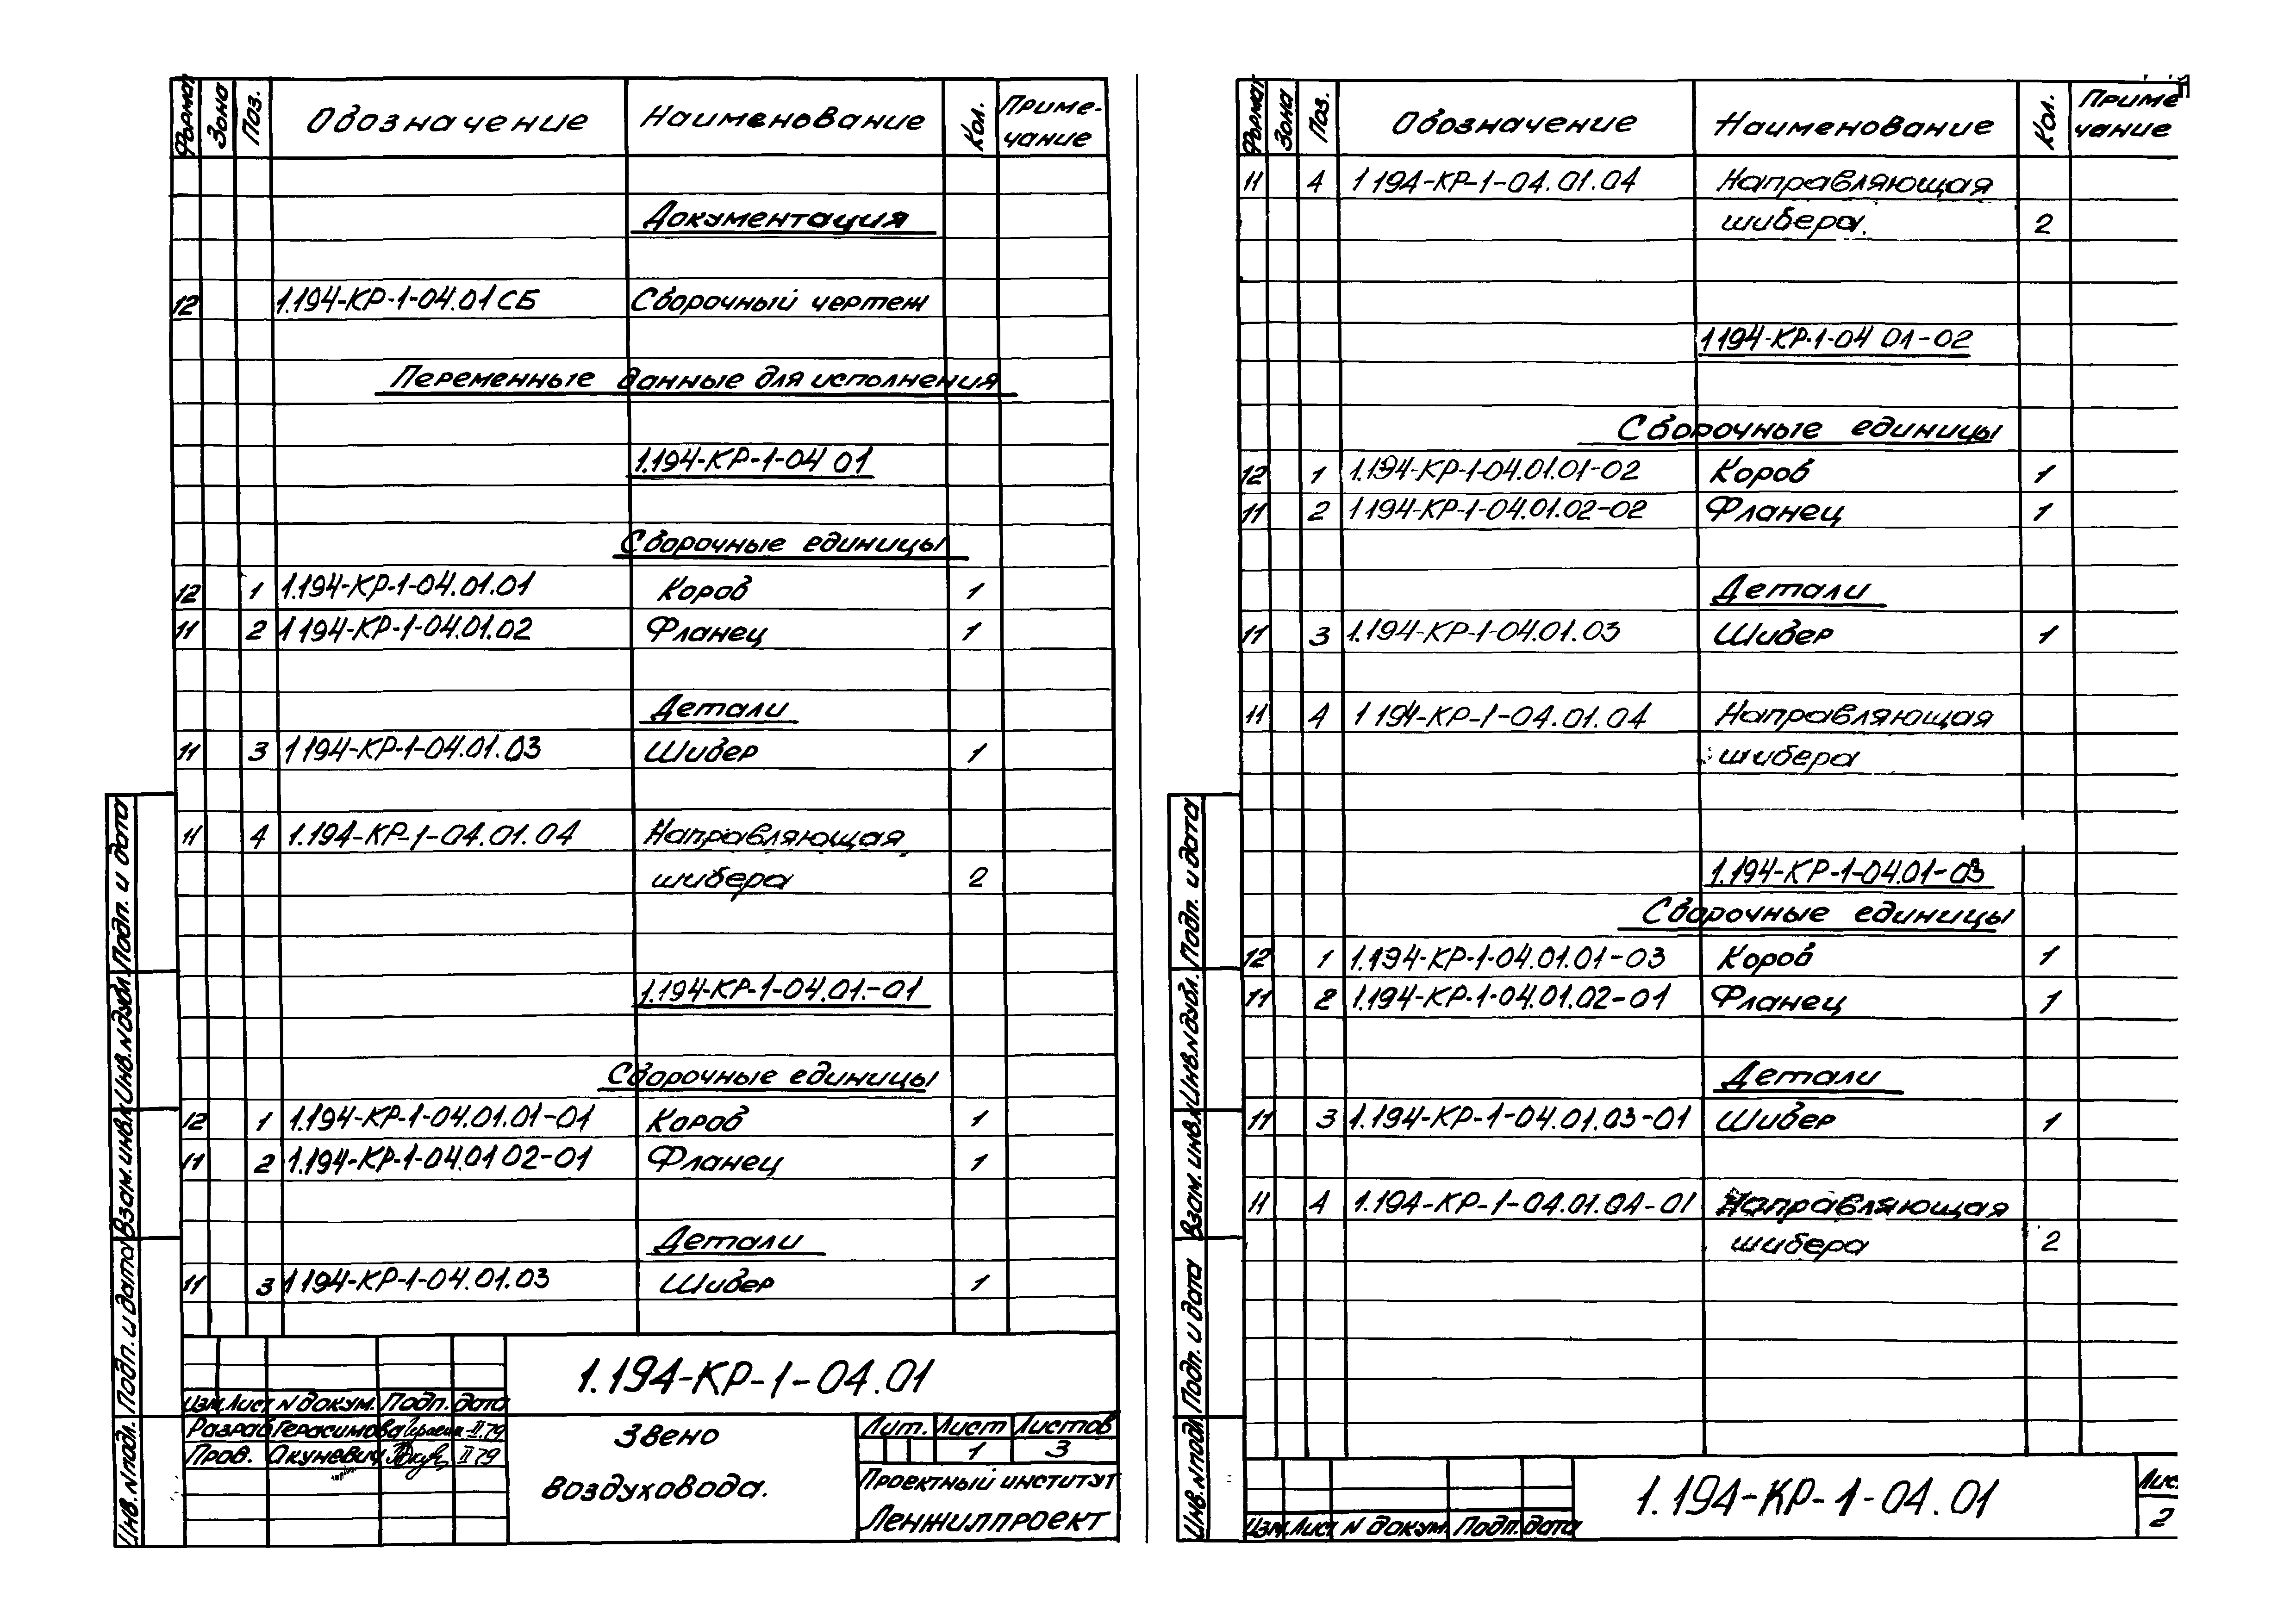 Формат Зона Поз. Обозначение Наименование Кол. Приме-
чание
Документация
12 1.194-КР-1-04.01 СБ Сборочный чертеж
Переменные данные для исполнения
1.194-КР-1-04 01
Сборочные единицы
12 1 1.194-КР-1-04.01.01 Короб 1
11 2 1 194-КР-1-04.01.02 Фланец 1
Детали
11 3 1 194-КР-1-04.01.03 Шибер 1
11 4 1.194-КР-1-04.01.04 Направляющая
шибера 2
1.194-КР-1-04.01.-01
Сборочные единицы
12 1 1.194-КР-1-04.01.01-01 Короб 1
11 2 1.194-КР-1-04.01 02-01 Фланец 1
Детали
11 3 1 194-КР-1-04.01.03 Шибер 1
Подп. и дата
Инв. N дубл.
Взам. инв. N
Подп. и дата
Инв. N подл.
1.194-КР-1-04.01
Изм. Лист N докум. Подп. дата
Разраб Герасимова II.79
Пров. Акуневич II 79
Звено
воздуховода.
Лит. Лист Листов
1 3
Проектный институт
Ленжилпроект
Формат Зона Поз. Обозначение Наименование Кол. Приме
чание
11 4 1 194-КР-1-04.01.04 Направляющая
шибера. 2
1 194-КР-1-04 01-02
Сборочные единицы
12 1 1.194-КР-1-04.01.01-02 Короб 1
11 2 1 194-КР-1-04.01.02-02 Фланец 1
Детали
11 3 1.194-КР-1-04.01.03 Шибер 1
11 4 1 194-КР-1-04.01.04 Направляющая
шибера
1.194-КР-1-04.01-03
Сборочные единицы
12 1 1.194-КР-1-04.01.01-03 Короб 1
11 2 1.194-КР-1-04.01.02-01 Фланец 1
Детали
11 3 1.194-КР-1-04.01.03-01 Шибер 1
11 4 1.194-КР-1-04.01.04-01 Направляющая
шибера 2
Подп. и дата
Инв. N дубл.
Взам. инв. N
Подп. и дата
Инв. N подл
Изм. Лист N докум. Подп. дата
1.194-КР-1-04.01
Лис
2